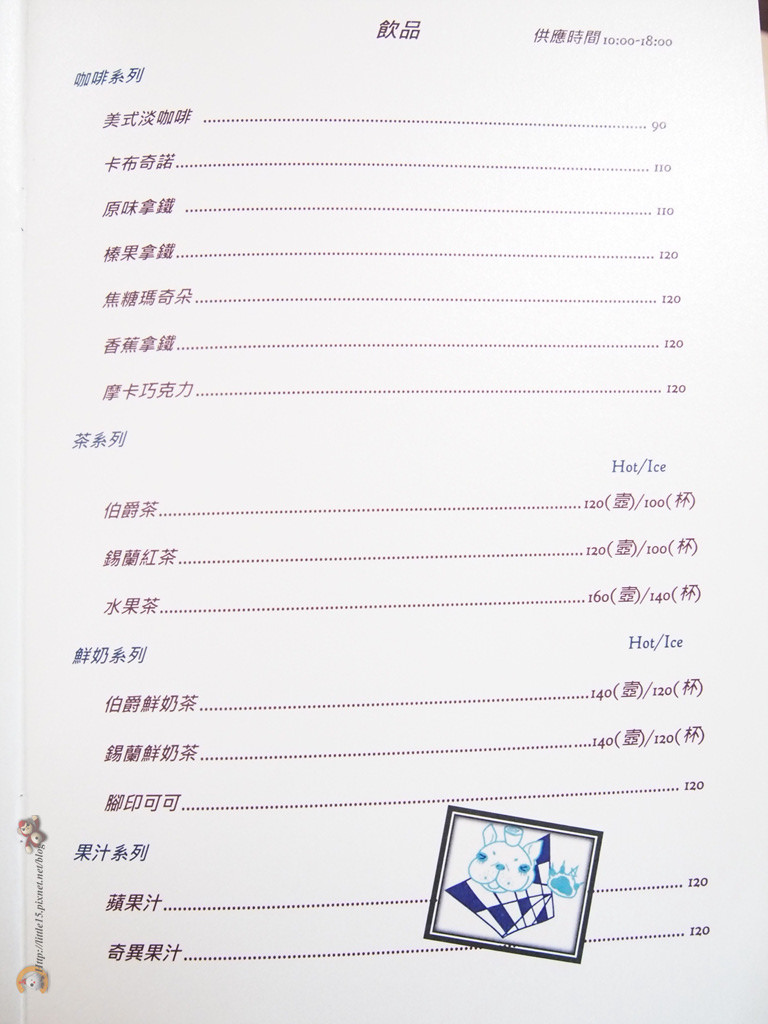 飲品
供應時間 10:00-18:00
咖啡系列
美式淡咖啡 90
卡布奇諾 110
原味拿鐵 110
榛果拿鐵 120
焦糖瑪奇朵 120
香蕉拿鐵 120
摩卡巧克力 120
茶系列
Hot/Ice
伯爵茶 120(壼)/100(杯)
錫蘭紅茶 120(壼)/100(杯)
水果茶 160(壼)/140(杯)
鮮奶系列 Hot/Ice
伯爵鮮奶茶 140(壼)/120(杯)
錫蘭鮮奶茶 140(壼)/120(杯)
腳印可可 120
果汁系列
蘋果汁 120
奇異果汁 120
Http://little15.pixnet.net/blog